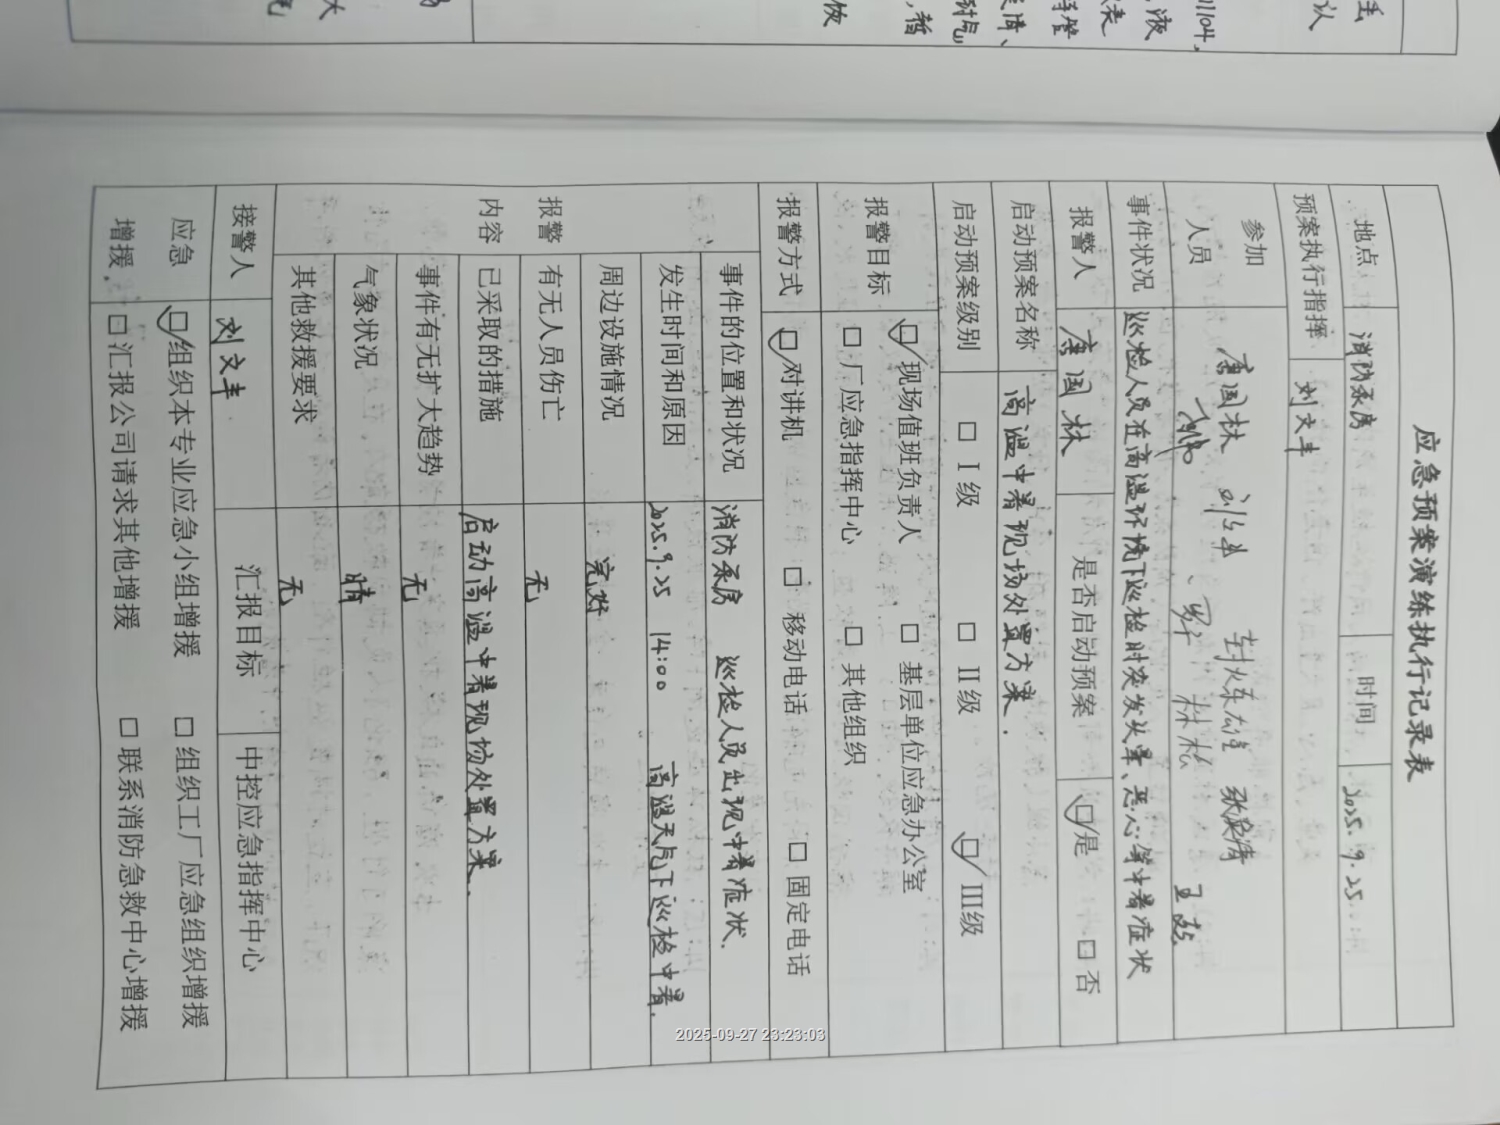 应急预案演练执行记录表
地点 消防泵房 时间 2025.9.25
预案执行指挥 刘文丰
参加人员 唐国林 刘文丰 张昊清
林松 王喆
事件状况 巡检人员在高温环境下巡检时突发头晕、恶心等中暑症状
报警人 唐国林 是否启动预案 ☑是 □否
启动预案名称 高温中暑现场处置方案.
启动预案级别 □ I级 □ II级 ☑ III级
报警目标 ☑现场值班负责人 □ 基层单位应急办公室
□ 厂应急指挥中心 □ 其他组织
报警方式 ☑对讲机 □ 移动电话 □ 固定电话
报警内容
事件的位置和状况 消防泵房 巡检人员出现中暑症状.
发生时间和原因 2025.9.25 14:00 高温天气下巡检中暑.
周边设施情况 完好
有无人员伤亡 无
已采取的措施 启动高温中暑现场处置方案.
事件有无扩大趋势 无
气象状况 晴
其他救援要求 无
接警人 刘文丰 汇报目标 中控应急指挥中心
应急增援 ☑组织本专业应急小组增援 □ 组织工厂应急组织增援
□汇报公司请求其他增援 □ 联系消防急救中心增援
2025-09-27 23:23:03